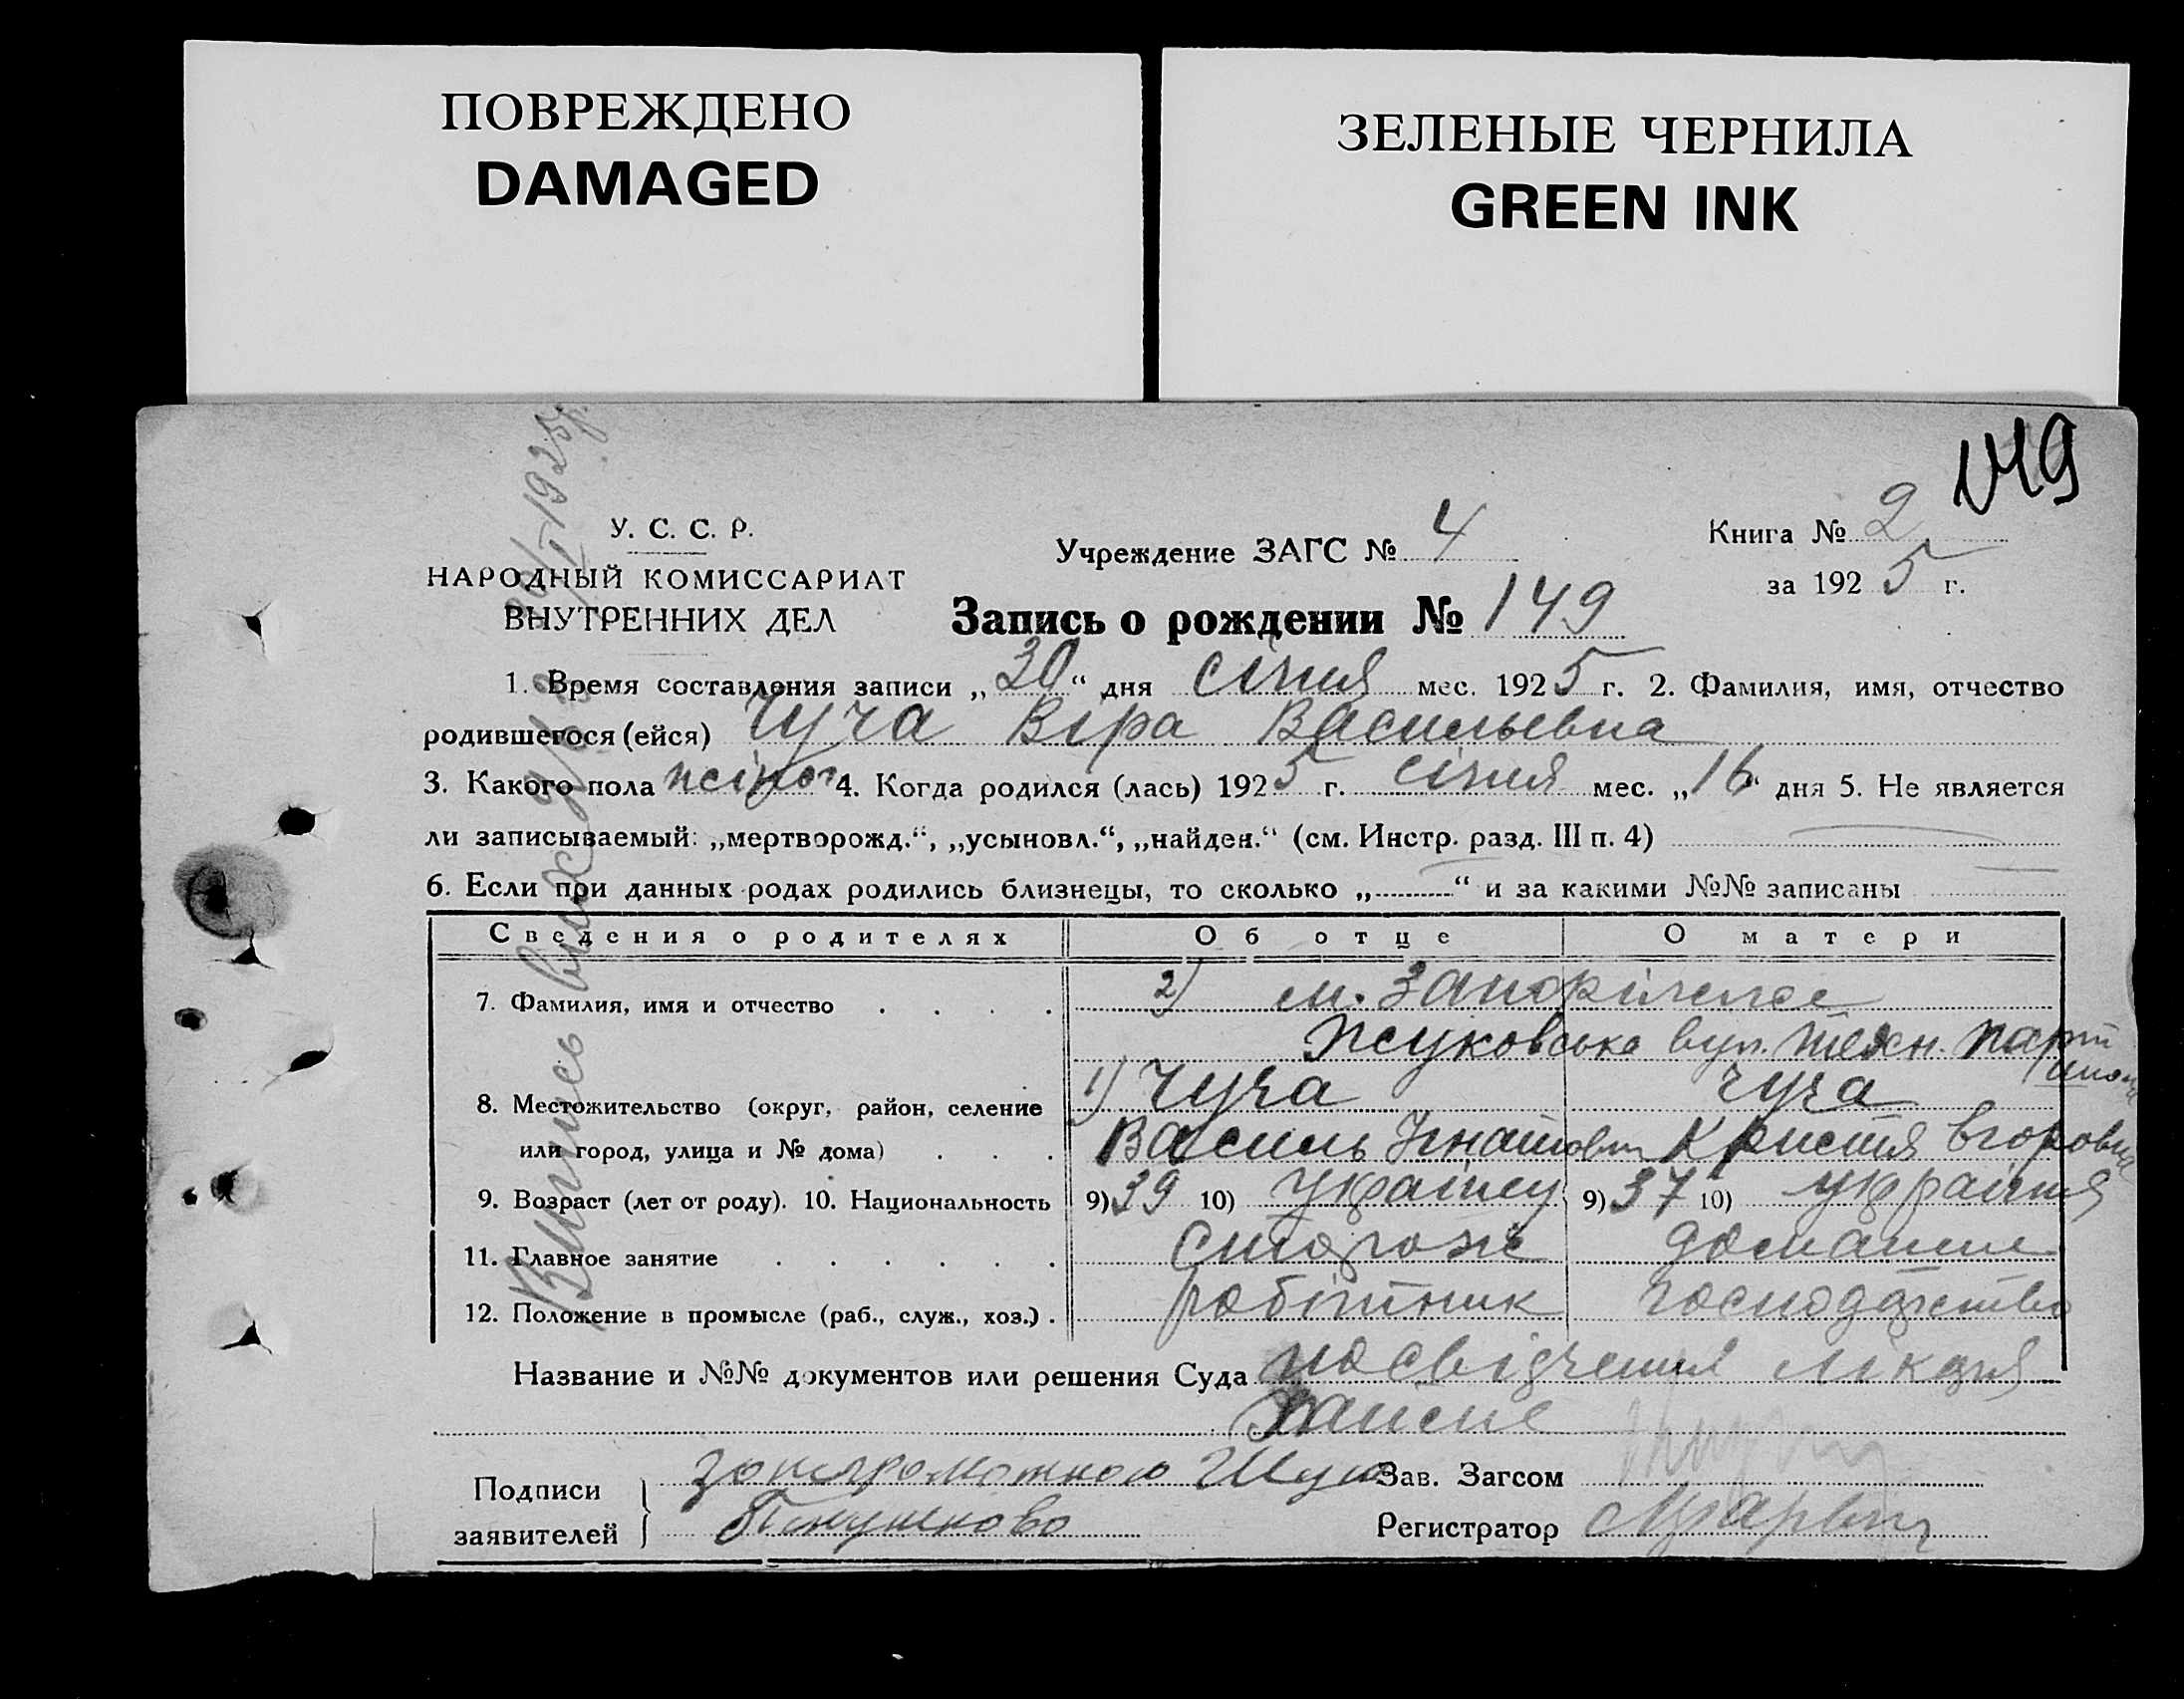 ПОВРЕЖДЕНО
DAMAGED
ЗЕЛЕНЫЕ ЧЕРНИЛА
GREEN INK
149
У. С. С. Р.
НАРОДНЫЙ КОМИССАРИАТ
ВНУТРЕННИХ ДЕЛ
Учреждение ЗАГС № 4
Книга № 2
за 1925 г.
Запись о рождении № 149
1. Время составления записи „30“ дня січня мес. 1925 г. 2. Фамилия, имя, отчество
родившегося (ейся) Чуча Віра Васильевна
3. Какого пола 4. Когда родился (лась) 1925 г. січня мес. „16“ дня 5. Не является
ли записываемый: „мертворожд.“, „усыновл.“, „найден.“ (см. Инстр. разд. III п. 4)
6. Если при данных родах родились близнецы, то сколько „ “ и за какими №№ записаны
Сведения о родителях Об отце О матери
7. Фамилия, имя и отчество . . . .
2) м. Запоріжжє
Жуковська вул. техн.
8. Местожительство (округ, район, селение
или город, улица и № дома) . . .
1) Чуча Чуча
Василь Ігнатович Христя Егоровна
9. Возраст (лет от роду). 10. Национальность 9) 39 10) Українец 9) 37 10) українка
11. Главное занятие . . . . . . сторож домашне
12. Положение в промысле (раб., служ., хоз.) . робітник господарство
Название и №№ документов или решения Суда посвідчення лікаря
Подписи
заявителей
Зав. Загсом
Регистратор
Выпись видана